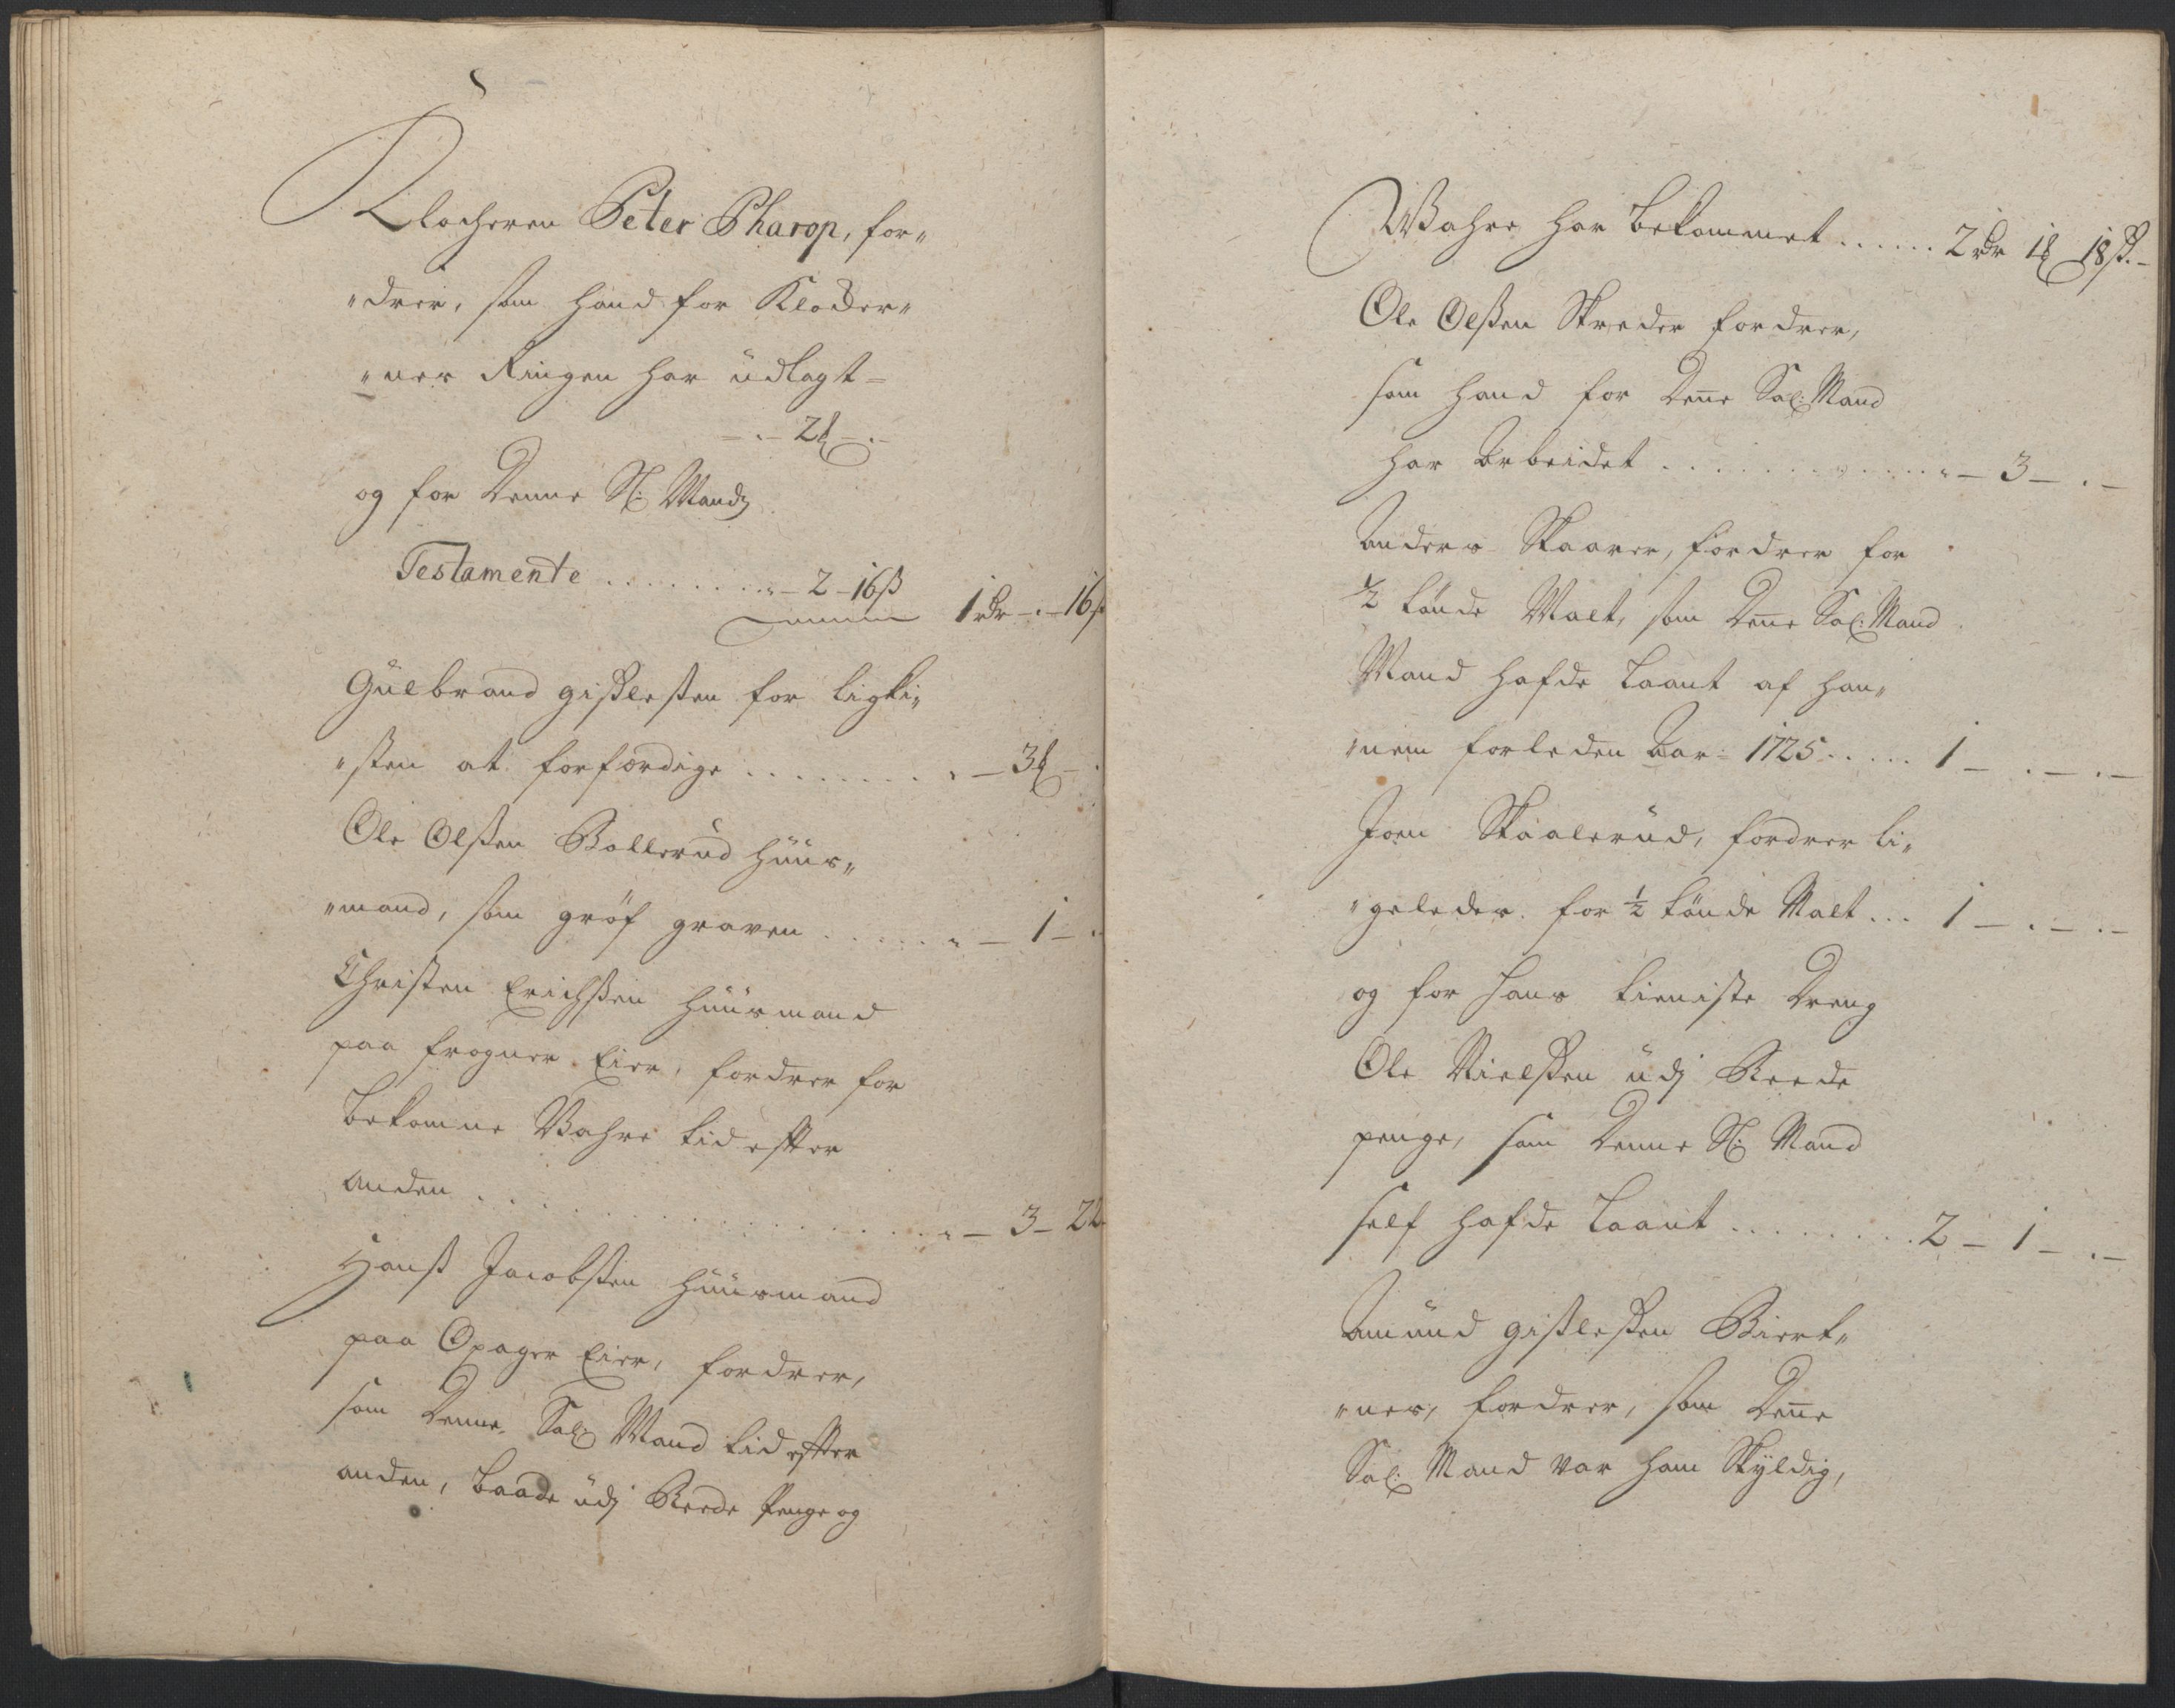 Klocheren Peter Pharop, for„
„drer, som hand for Klocker„
„nes Ringen har üdlagt =
-.- 2 ₰ -.-
og for denne Sl: Mandz
Testamente ........ „ - 2 - 16 ß
1 rdr - . - 16 ß
Gülbrand Gißleßen for Ligki„
„sten at forfærdige ........ „ - 3 ₰ - .
Ole Olßen Bollerüd Hüüs„
„mand, som gröf graven ...... „ - 1 - .
Christen Erichßen Hüüsmand
paa Frogner Eier, fordrer for
bekomne Wahre tid efter
anden ........ „ - 3 - 22
Hanß Jacobßen Hüüsmand
paa Opager Eier, fordrer,
som denne Sal: Mand tid efter
anden, baade üdj Reede Penge og
Wahre har bekommet ...... 2 rdr 1 ₰ 18 ß. -
Ole Olßen Skreder fordrer,
som hand for denne Sal: Mand
har Arbeidet ........ „ - 3 - . -
Anders Skaarer, fordrer for
½ tünde Malt, som denne Sal: Mand
Mand hafde laant af han„
„nem forleden Aar = 1725 ..... 1 - . - . -
Joen Skaalerüd, fordrer li„
„geledes for ½ tünde Malt ... 1 - . - . -
og for hans tieniste Dreng
Ole Nielßen üdj Reede
penge, som denne Sl: Mand
self hafde laant ........ 2 - 1 - . -
Amünd Gißleßen Biert„
„nes, fordrer, som denne
Sal: Mand var ham Skyldig,